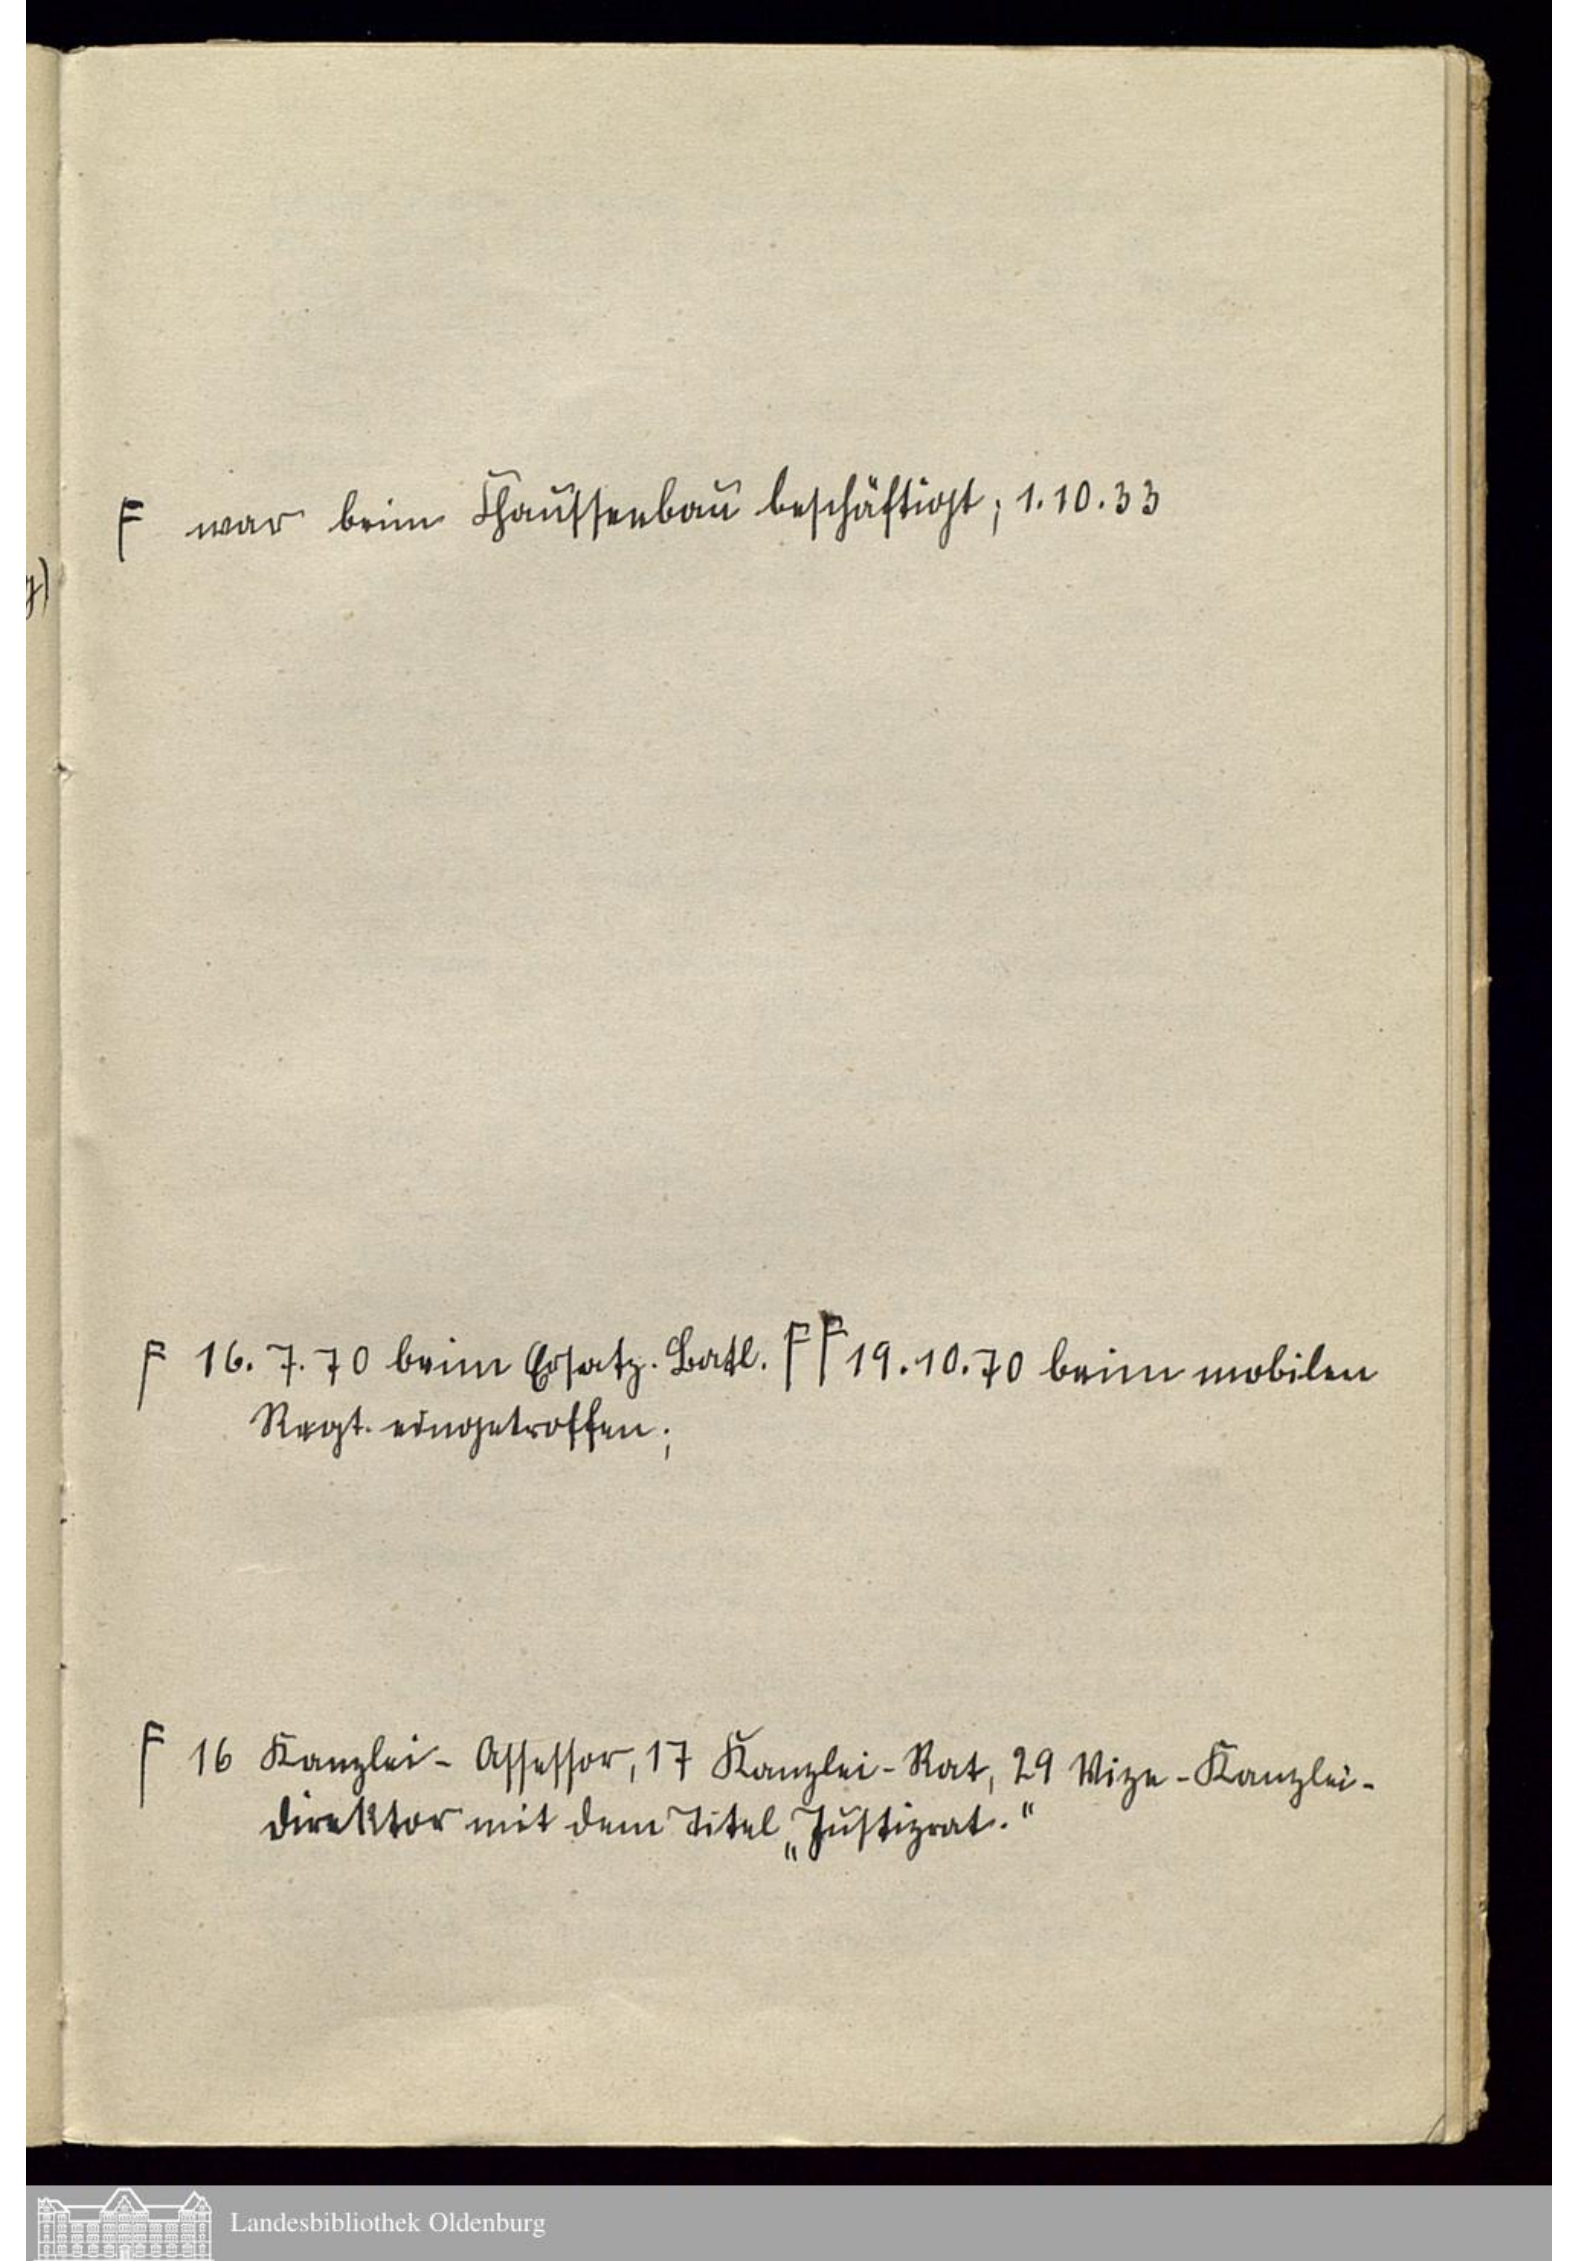 F war beim Chaussenbau beschäftigt; 1.10.33
g)
F 16.7.70 beim Ersatz-Batl. FF 19.10.70 beim mobilen
Regt. eingetroffen;
F 16 Kanzlei-Assessor, 17 Kanzlei-Rat, 29 Vize-Kanzlei-
direktor mit dem Titel „Justizrat."
Landesbibliothek Oldenburg